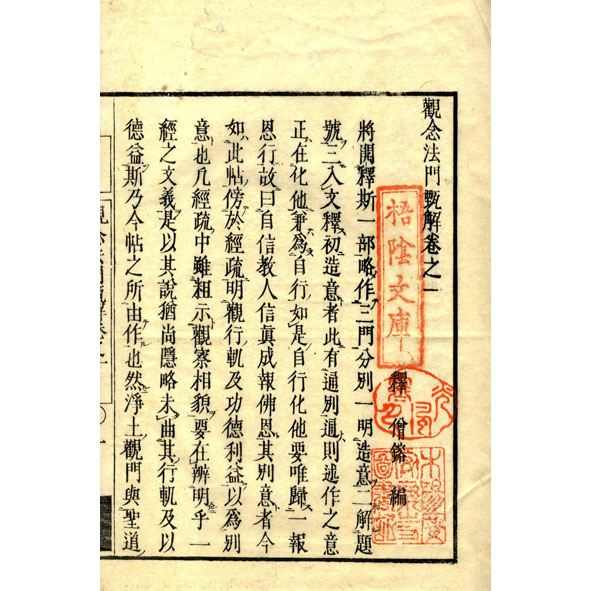 觀念法門甄解卷之一
釋 僧鎔 編
將開釋斯一部略作三門分別一明造意二解題
號三入文釋初造意者此有通別通則述作之意
正在化他兼為自行如是自行化他要唯歸一報
恩行故曰自信教人信眞成報佛恩其別意者今
如此帖傍於經疏明觀行軌及功德利益以為別
意也凡經疏中雖粗示觀察相貌要在辨明乎一
經之文義是以其說猶尚隱略未曲其行軌及以
德益斯乃今帖之所由作也然淨土觀門與聖道
梧陰文庫